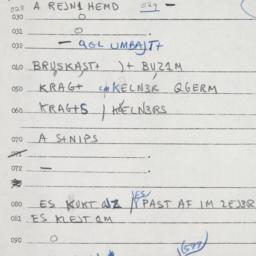 028 A REJN1HEMD 029 —
030 O
031 O .
032 — QGL UMBAJT+
040 BRUSKAST+ )+ BUZ1M
050 KRAG+ KELN3R QGERM
060 KRAGTS KELN3RS
070 A S+NIPS
071 .
072 —
080 ES KUKT ES PAST AF IM ZEJ3R
081 ES KLEJT 1M
090 O